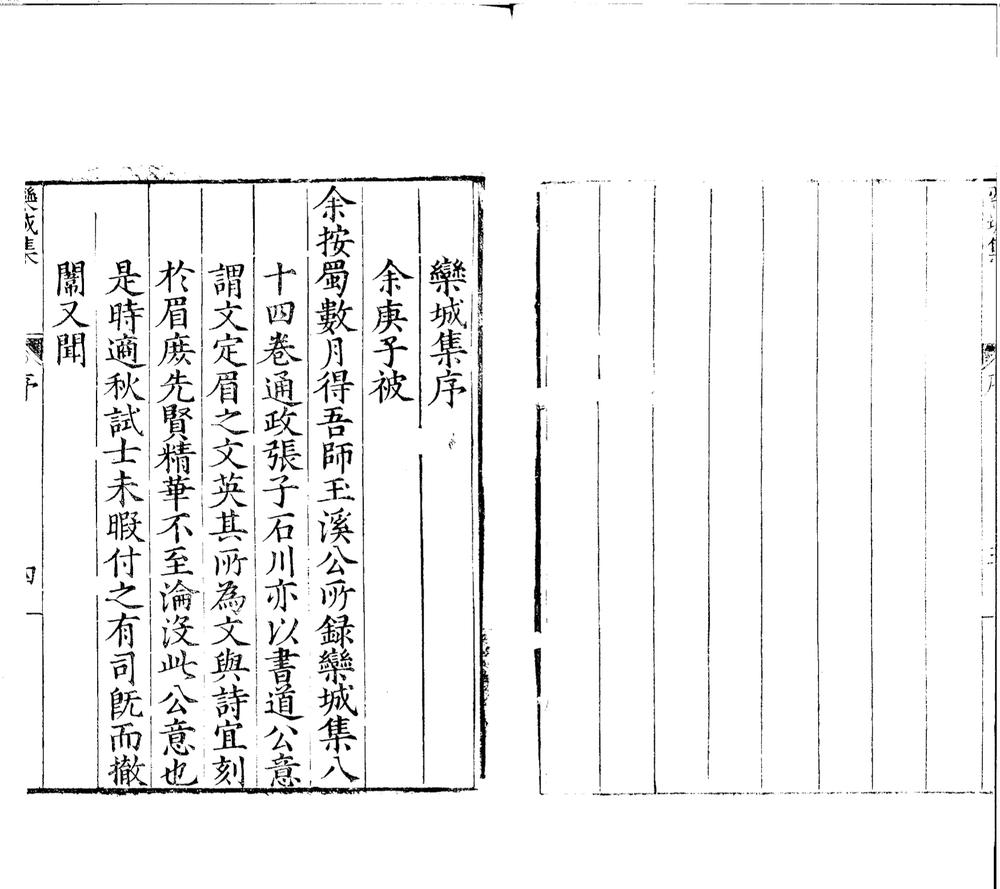 欒城集序
余庚子被
余按蜀數月得吾師玉溪公所録欒城集八
十四卷通政張子石川亦以書道公意
謂文定眉之文英其所為文與詩宜刻
於眉庶先賢精華不至淪沒此公意也
是時適秋試士未暇付之有司既而撤
闈又聞
欒城集
序
四